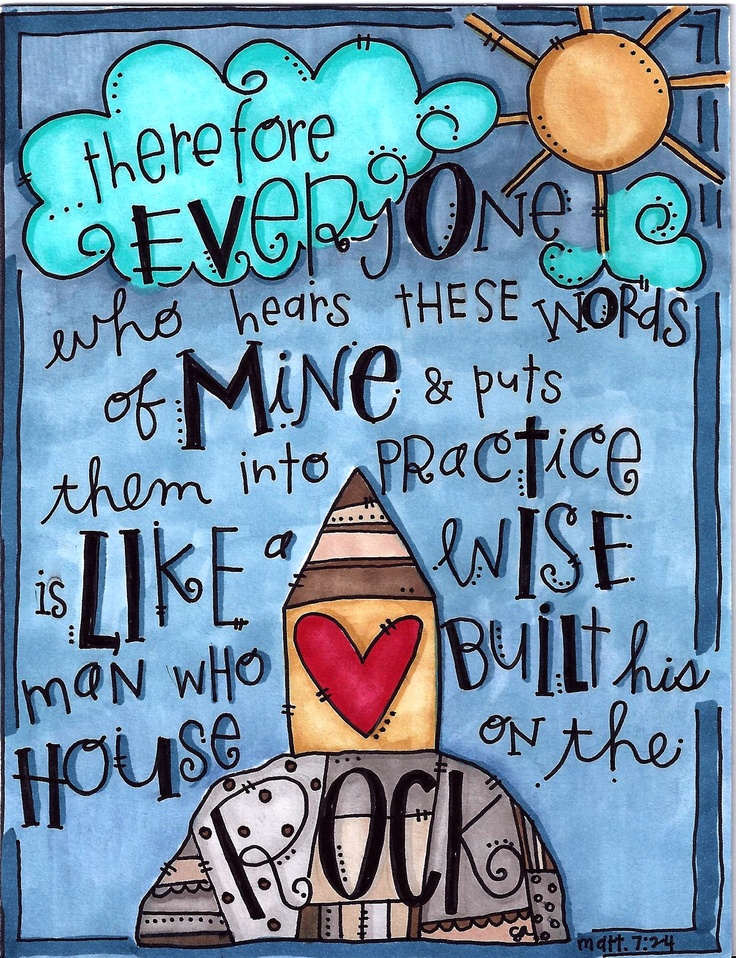 therefore
EVERYONE
who hears THESE WORDS
of MINE & puts
them into PRACTICE
is LIKE a WISE
man WHO BUILT his
HOUSE ON the
ROCK
matt. 7:24